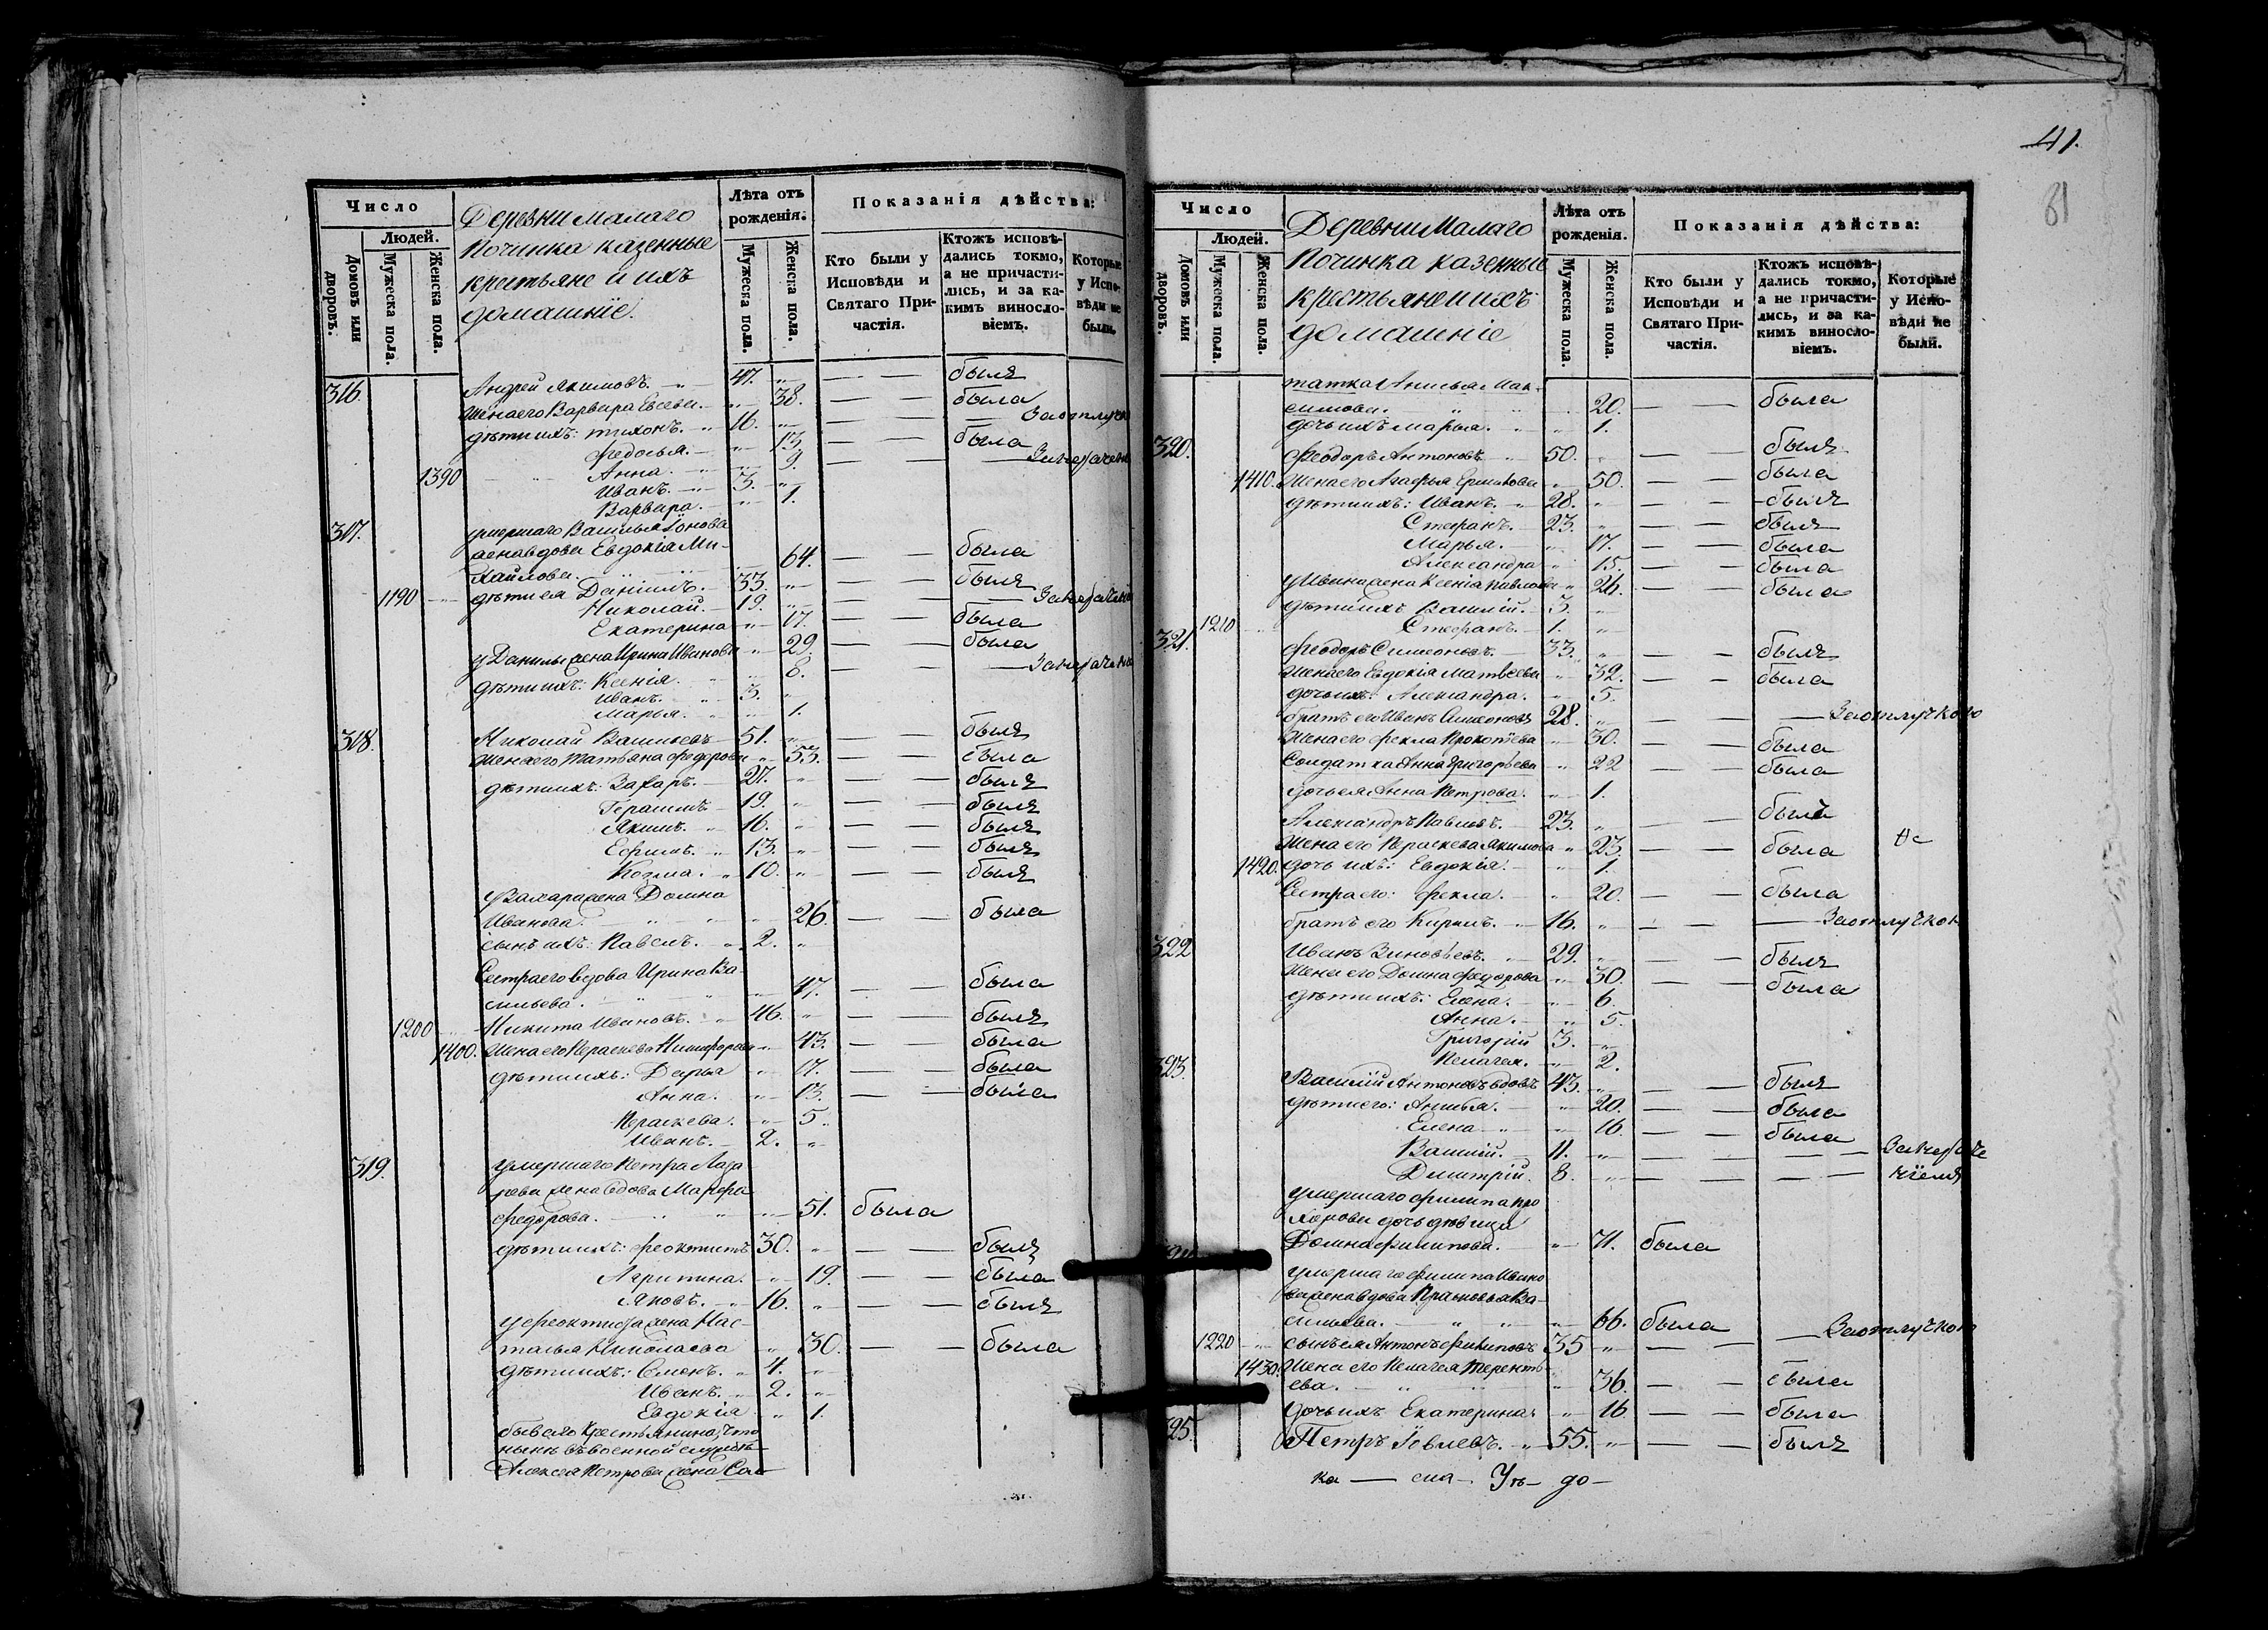 Число
Людей.
Домовъ или дворовъ.
Мужеска пола.
Женска пола.
Деревни Малаго
Починка казенные
крестьяне и ихъ
домашніе.
Лѣта отъ рожденія.
Мужеска пола.
Женска пола.
Показанія дѣйства:
Кто были у Исповѣди и Святаго Причастія.
Ктожъ исповѣдались токмо, а не причастились, и за какимъ винословіемъ.
Которые у Исповѣди не были.
316. Андрей Якимовъ. 47. былъ
Жена его Варвара Евсеева. 38. была
дѣти ихъ: Тихонъ. 16. За отлуч
Федосья. 13. была
1390 Анна. 9.
Иванъ. 3.
Варвара. 1.
317. умершаго Василья
жена вдова Евдокія Ми-
хайлова. 64. была
1190 дѣти ея Даніилъ. 33. былъ
Николай. 19.
Екатерина 17. была
у Данилы жена Ирина Иванова 29. была
дѣти ихъ: Ксенія. 8.
Иванъ. 3.
Марья. 1.
318. Николай Васильевъ 51. былъ
Жена его Татьяна Федорова 53. была
дѣти ихъ: Захаръ. 27. былъ
Герасимъ 19. былъ
Якимъ. 16. былъ
Ефимъ. 13. былъ
Козма. 10. былъ
у Захара жена Домна
Иванова. 26. была
сынъ ихъ: Павелъ. 2.
Сестра его вдова Ирина Ва-
сильева. 47. была
1200 Никита Ивановъ. 46. былъ
1400. Жена его Параскева Никифорова 43. была
дѣти ихъ: Дарья 17. была
Анна. 13. была
Параскева. 5.
Иванъ. 2.
319. умершаго Петра Лаза
рева жена вдова Марфа
Федорова. 51. была
дѣти ихъ: Феоктистъ 30. былъ
Агрипина. 19. была
Яковъ. 16. былъ
у Феоктиста жена Нас-
тасья Николаева 30. была
дѣти ихъ: Семенъ. 4.
Иванъ. 2.
Евдокія 1.
бывшаго крестьянина, что
нынѣ въ военной службѣ
Алексея Петрова жена Сол-
41.
81
Число
Людей.
Домовъ или дворовъ.
Мужеска пола.
Женска пола.
Деревни Малаго
Починка казенные
крестьяне и ихъ
домашніе
Лѣта отъ рожденія.
Мужеска пола.
Женска пола.
Показанія дѣйства:
Кто были у Исповѣди и Святаго Причастія.
Ктожъ исповѣдались токмо, а не причастились, и за какимъ винословіемъ.
Которые у Исповѣди не были.
татка Анисья Мак-
симова. 20. была
дочь ихъ Марья. 1.
320. Феодоръ Антоновъ 50. былъ
1410. Жена его Агафья Ермилова 50. была
дѣти ихъ: Иванъ. 28. былъ
Стефанъ. 23. былъ
Марья. 17. была
Александра 15. была
у Ивана жена Ксенія Павлова 26. была
дѣти ихъ Василій. 3.
1210 Стефанъ. 1.
321. Феодоръ Симеоновъ. 33. былъ
Жена его Евдокія Матвеева 32. была
дочь ихъ: Александра. 5.
братъ его Иванъ Симеоновъ 28. За отлучкою
Жена его Фекла Прокопіева 30. была
Солдатка Анна Григорьева 22 была
дочь ея Анна Петрова. 1.
Александръ Павловъ. 23. былъ
Жена его Параскева Якимова 23 была
1420. дочь ихъ: Евдокія. 1.
Сестра его: Фекла. 20. была
братъ его Кирилъ. 16. За отлучкою
322 Иванъ Зиновьевъ. 29. былъ
Жена его Домна Федорова 30. была
дѣти ихъ: Елена. 6.
Анна. 5.
Григорій 3.
Пелагея. 2.
323. Василій Антоновъ вдовъ 43. былъ
дѣти его: Анисья. 20. была
Елена 16. была
Василій. 11.
Димитрій. 8.
умершаго Филипа Про
хорова дочь дѣвица
Домна Филипова. 71. была
умершаго Филипа Ивано
ва жена вдова Прасковья Ва-
сильева. 66. была
1220 сынъ ея Антонъ Филиповъ 35 За отлучкою
1430. Жена его Пелагея Теренть
ева. 36. была
дочь ихъ Екатерина 16 была
325. Петръ Іовлевъ. 55. былъ